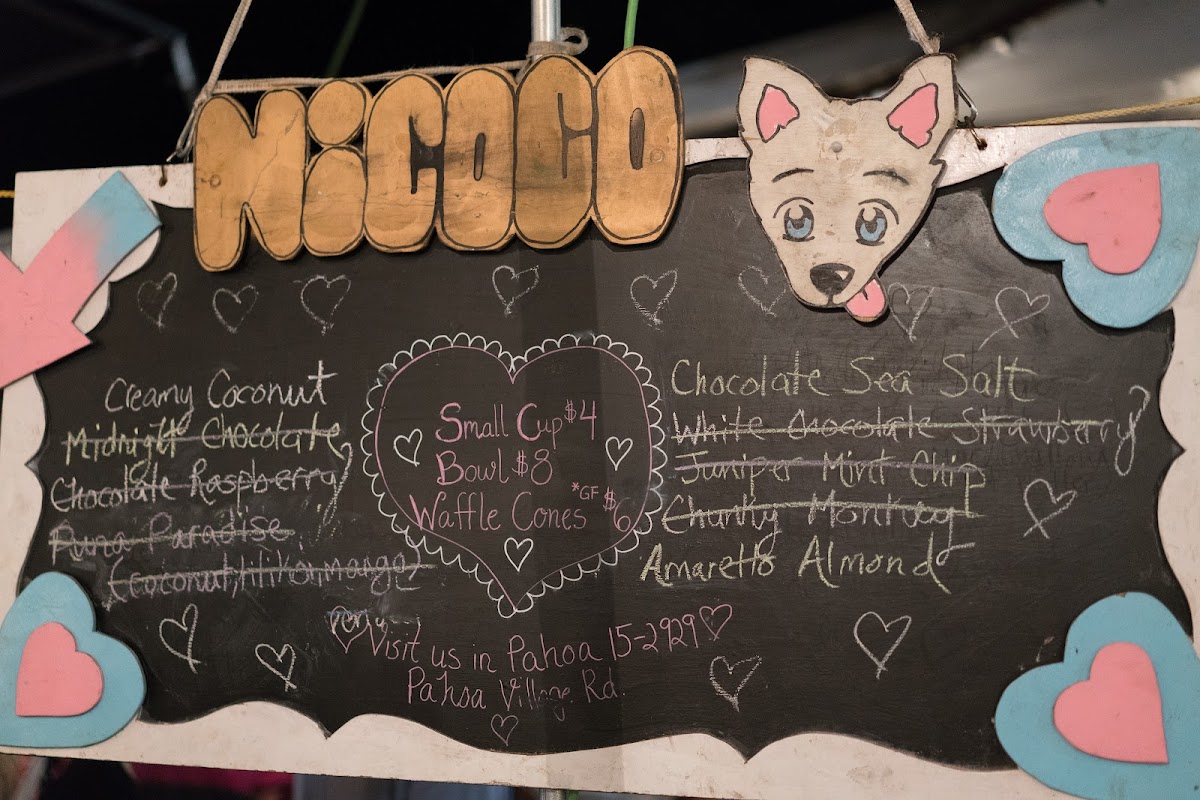 NiCOCO
Creamy Coconut
Midnight Chocolate
Chocolate Raspberry
Puna Paradise
(coconut, lilikoi, mango)
Small Cup $4
Bowl $8
Waffle Cones *GF $6
Chocolate Sea Salt
White Chocolate Strawberry
Juniper Mint Chip
Chunky Monkey
Amaretto Almond
Visit us in Pahoa 15-2929
Pahoa Village Rd.